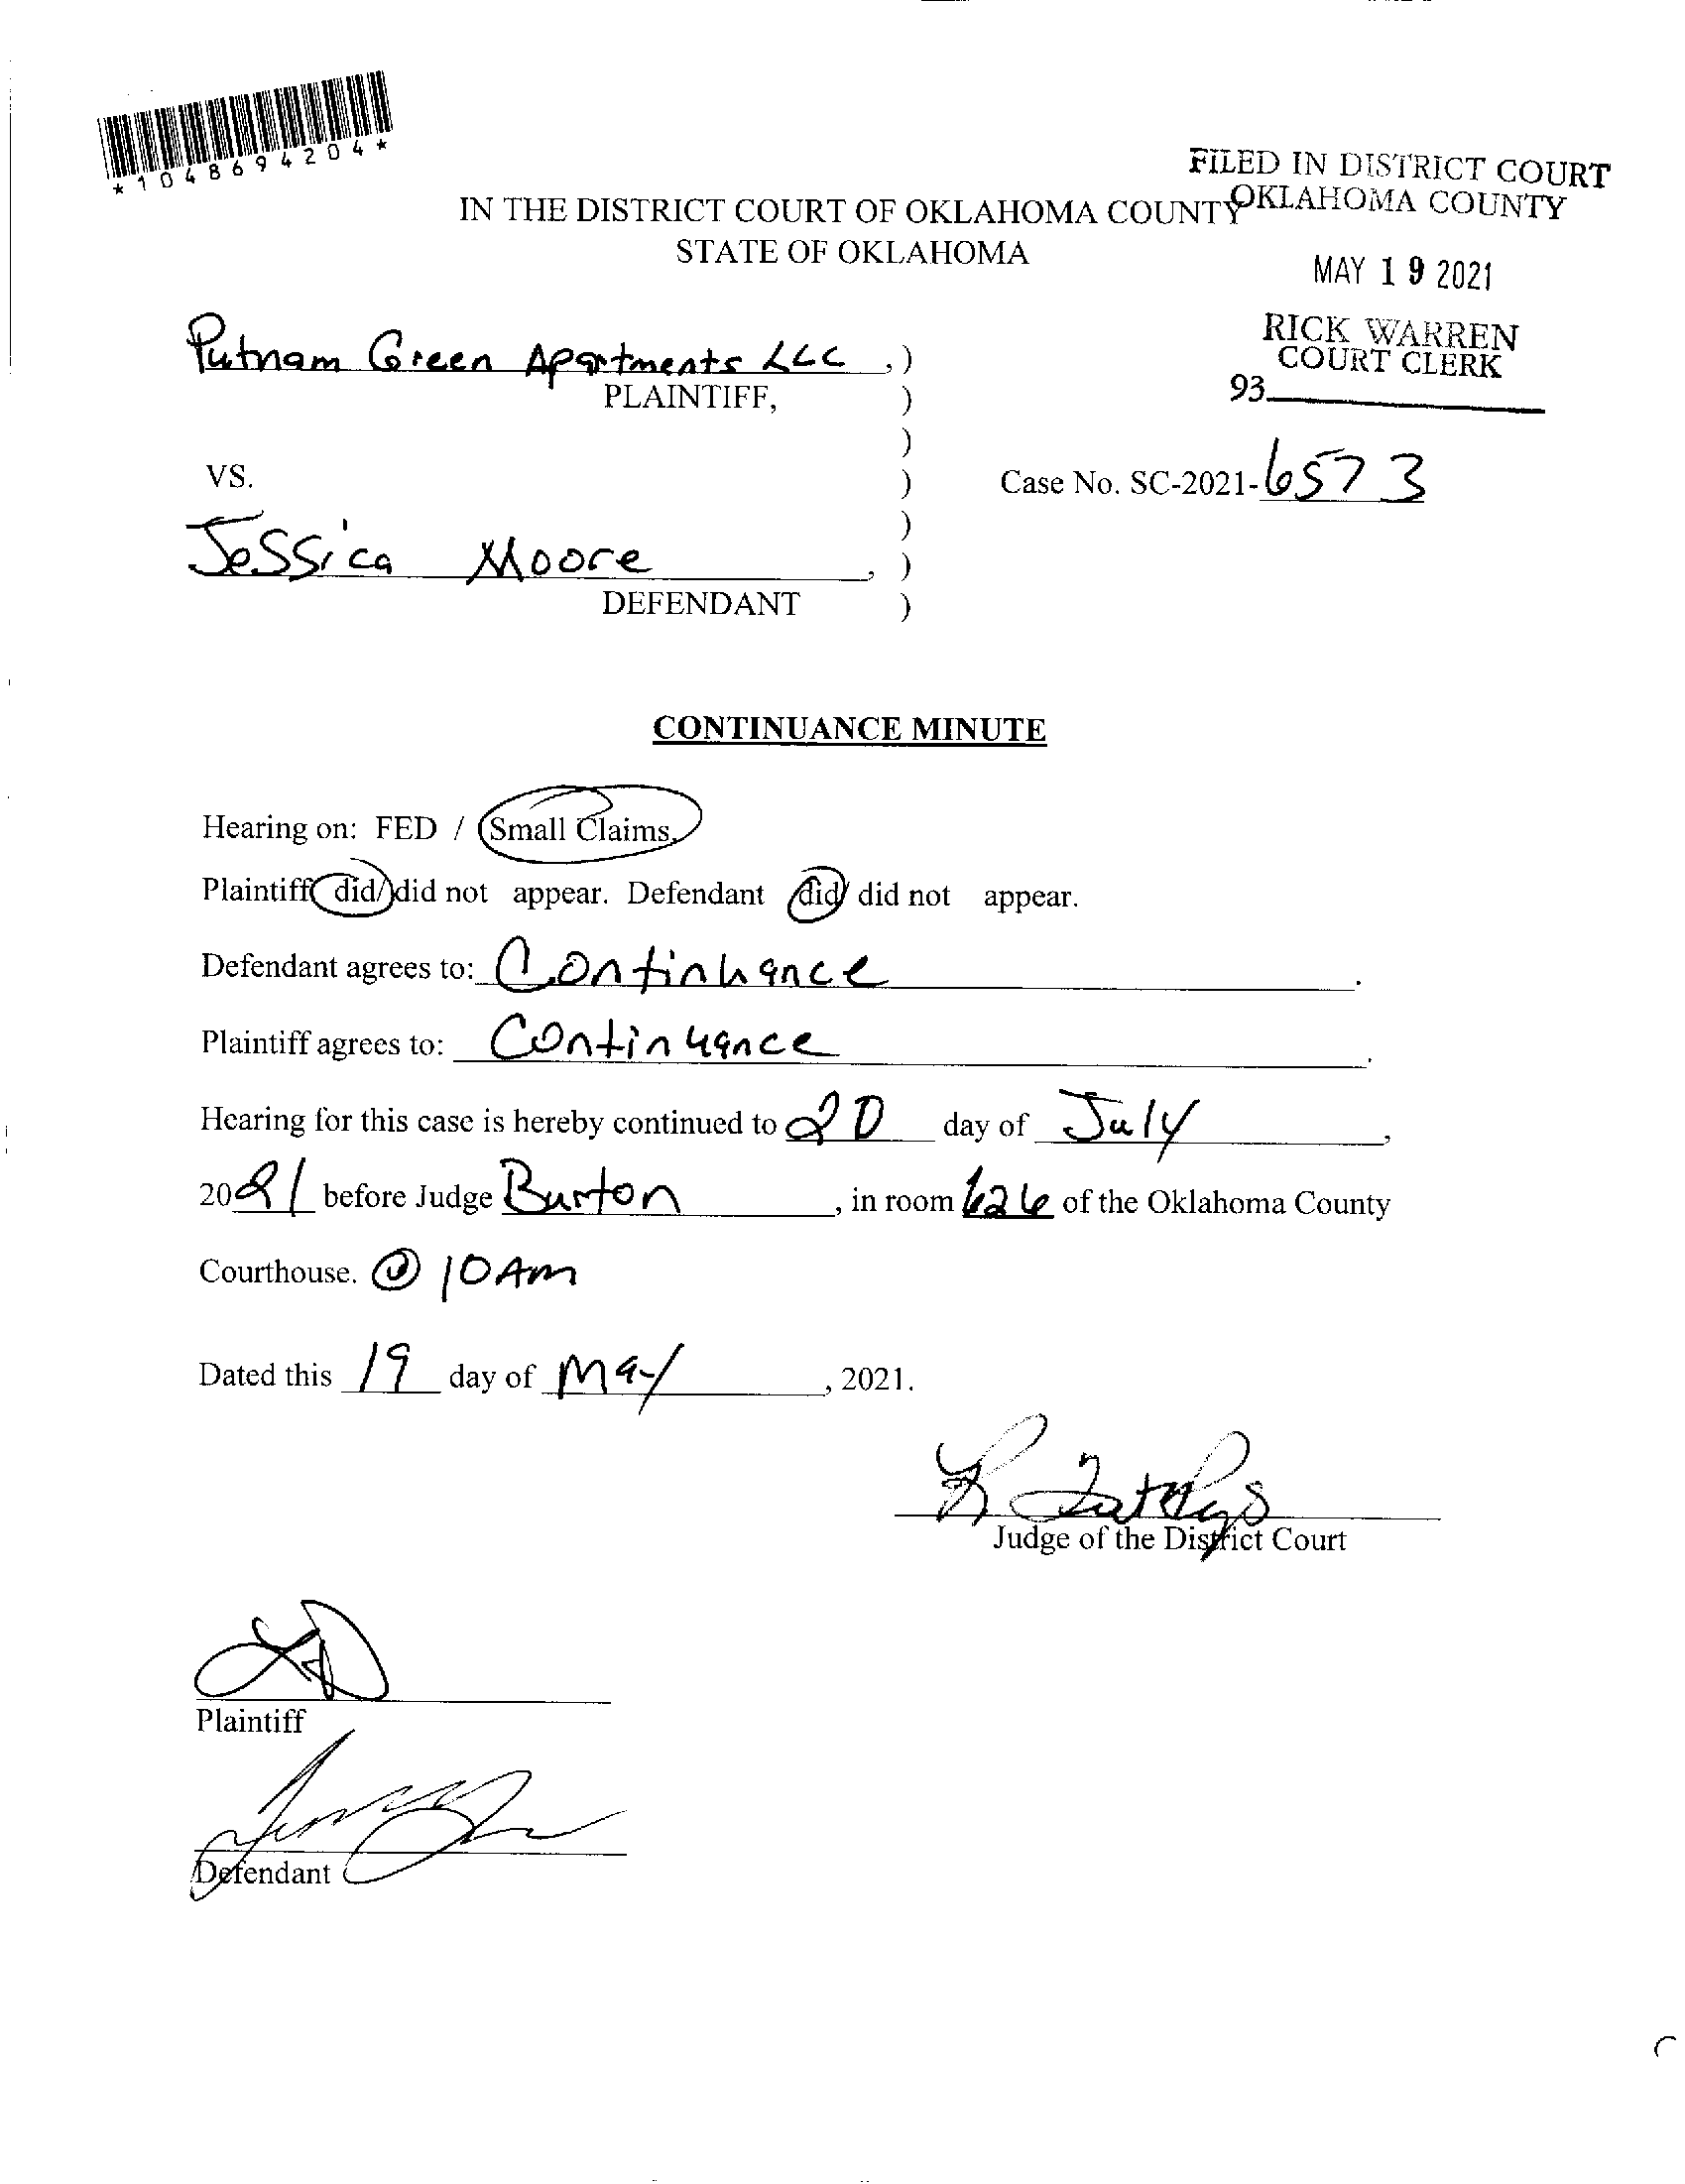 *1048694204*
FILED IN DISTRICT COURT
OKLAHOMA COUNTY
IN THE DISTRICT COURT OF OKLAHOMA COUNTY
STATE OF OKLAHOMA
MAY 19 2021
RICK WARREN
COURT CLERK
93
Putnam Green Apartments LLC ,)
PLAINTIFF, )
)
VS. ) Case No. SC-2021-6573
)
Jessica Moore , )
DEFENDANT )
CONTINUANCE MINUTE
Hearing on: FED / Small Claims.
Plaintiff did/did not appear. Defendant did/ did not appear.
Defendant agrees to: Continuance .
Plaintiff agrees to: Continuance .
Hearing for this case is hereby continued to 20 day of July ,
2021 before Judge Burton , in room 626 of the Oklahoma County
Courthouse. @ 10 Am
Dated this 19 day of May , 2021.
Judge of the District Court
Plaintiff
Defendant